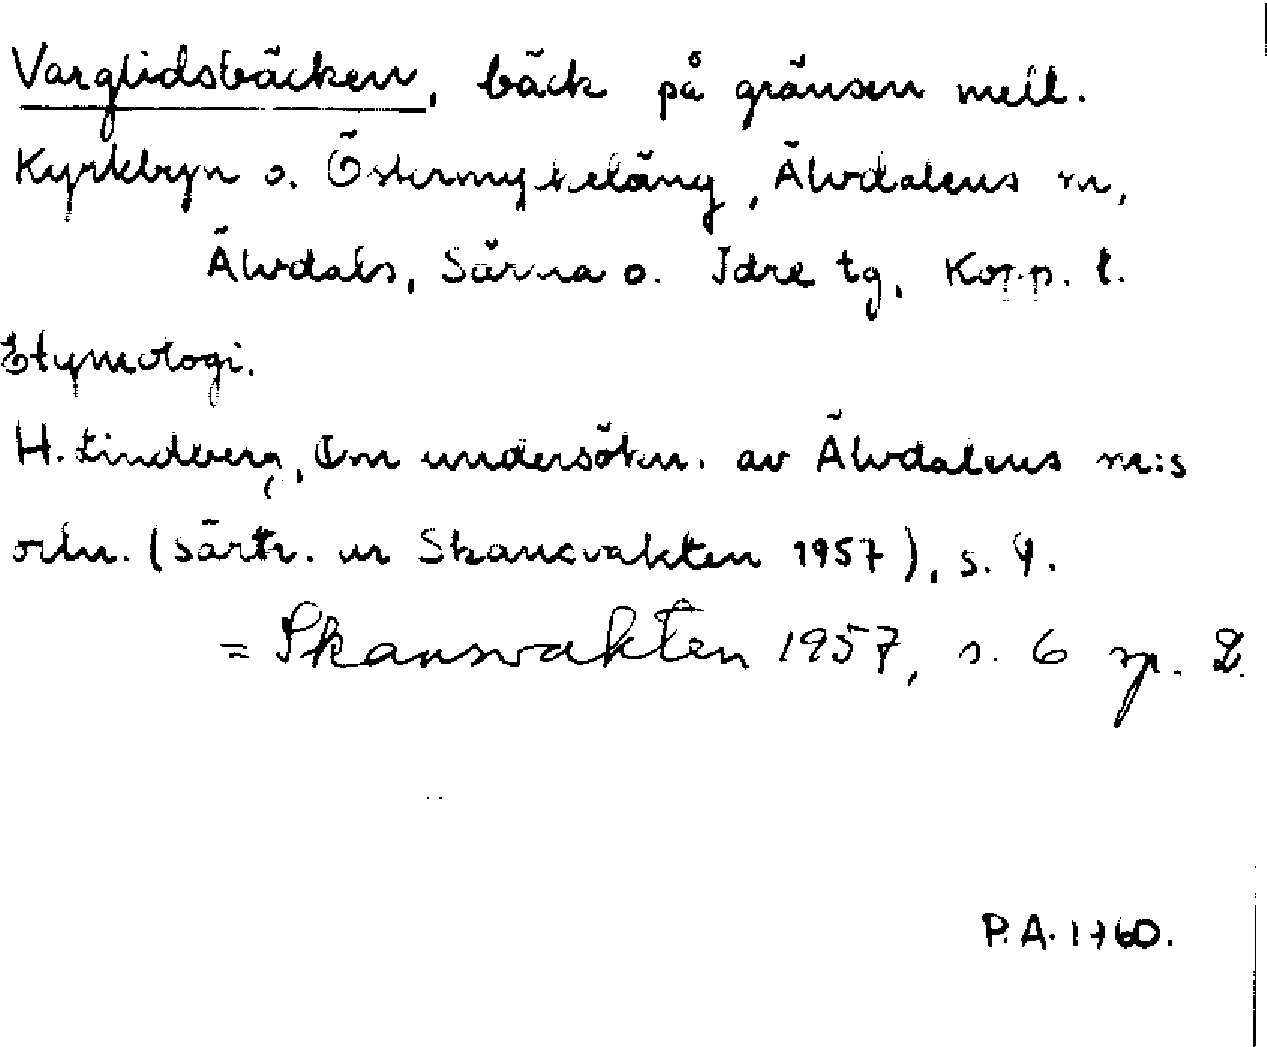 Varglidsbäcken, bäck på gränsen mell.
Kyrkbyn o. Östermyckeläng, Älvdalens sn,
Älvdals, Särna o. Idre tg, Kopp. l.
Etymologi.
H. Lindberg, Om undersökn. av Älvdalens sn:s
ortn. (särtr. ur Skansvakten 1957), s. 9.
= Skansvakten 1957, s. 6 sp. 2.
P.A. 1960.